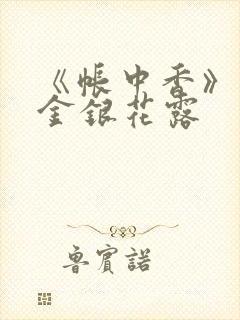 《帐中香》
金银花露
鲁宾诺